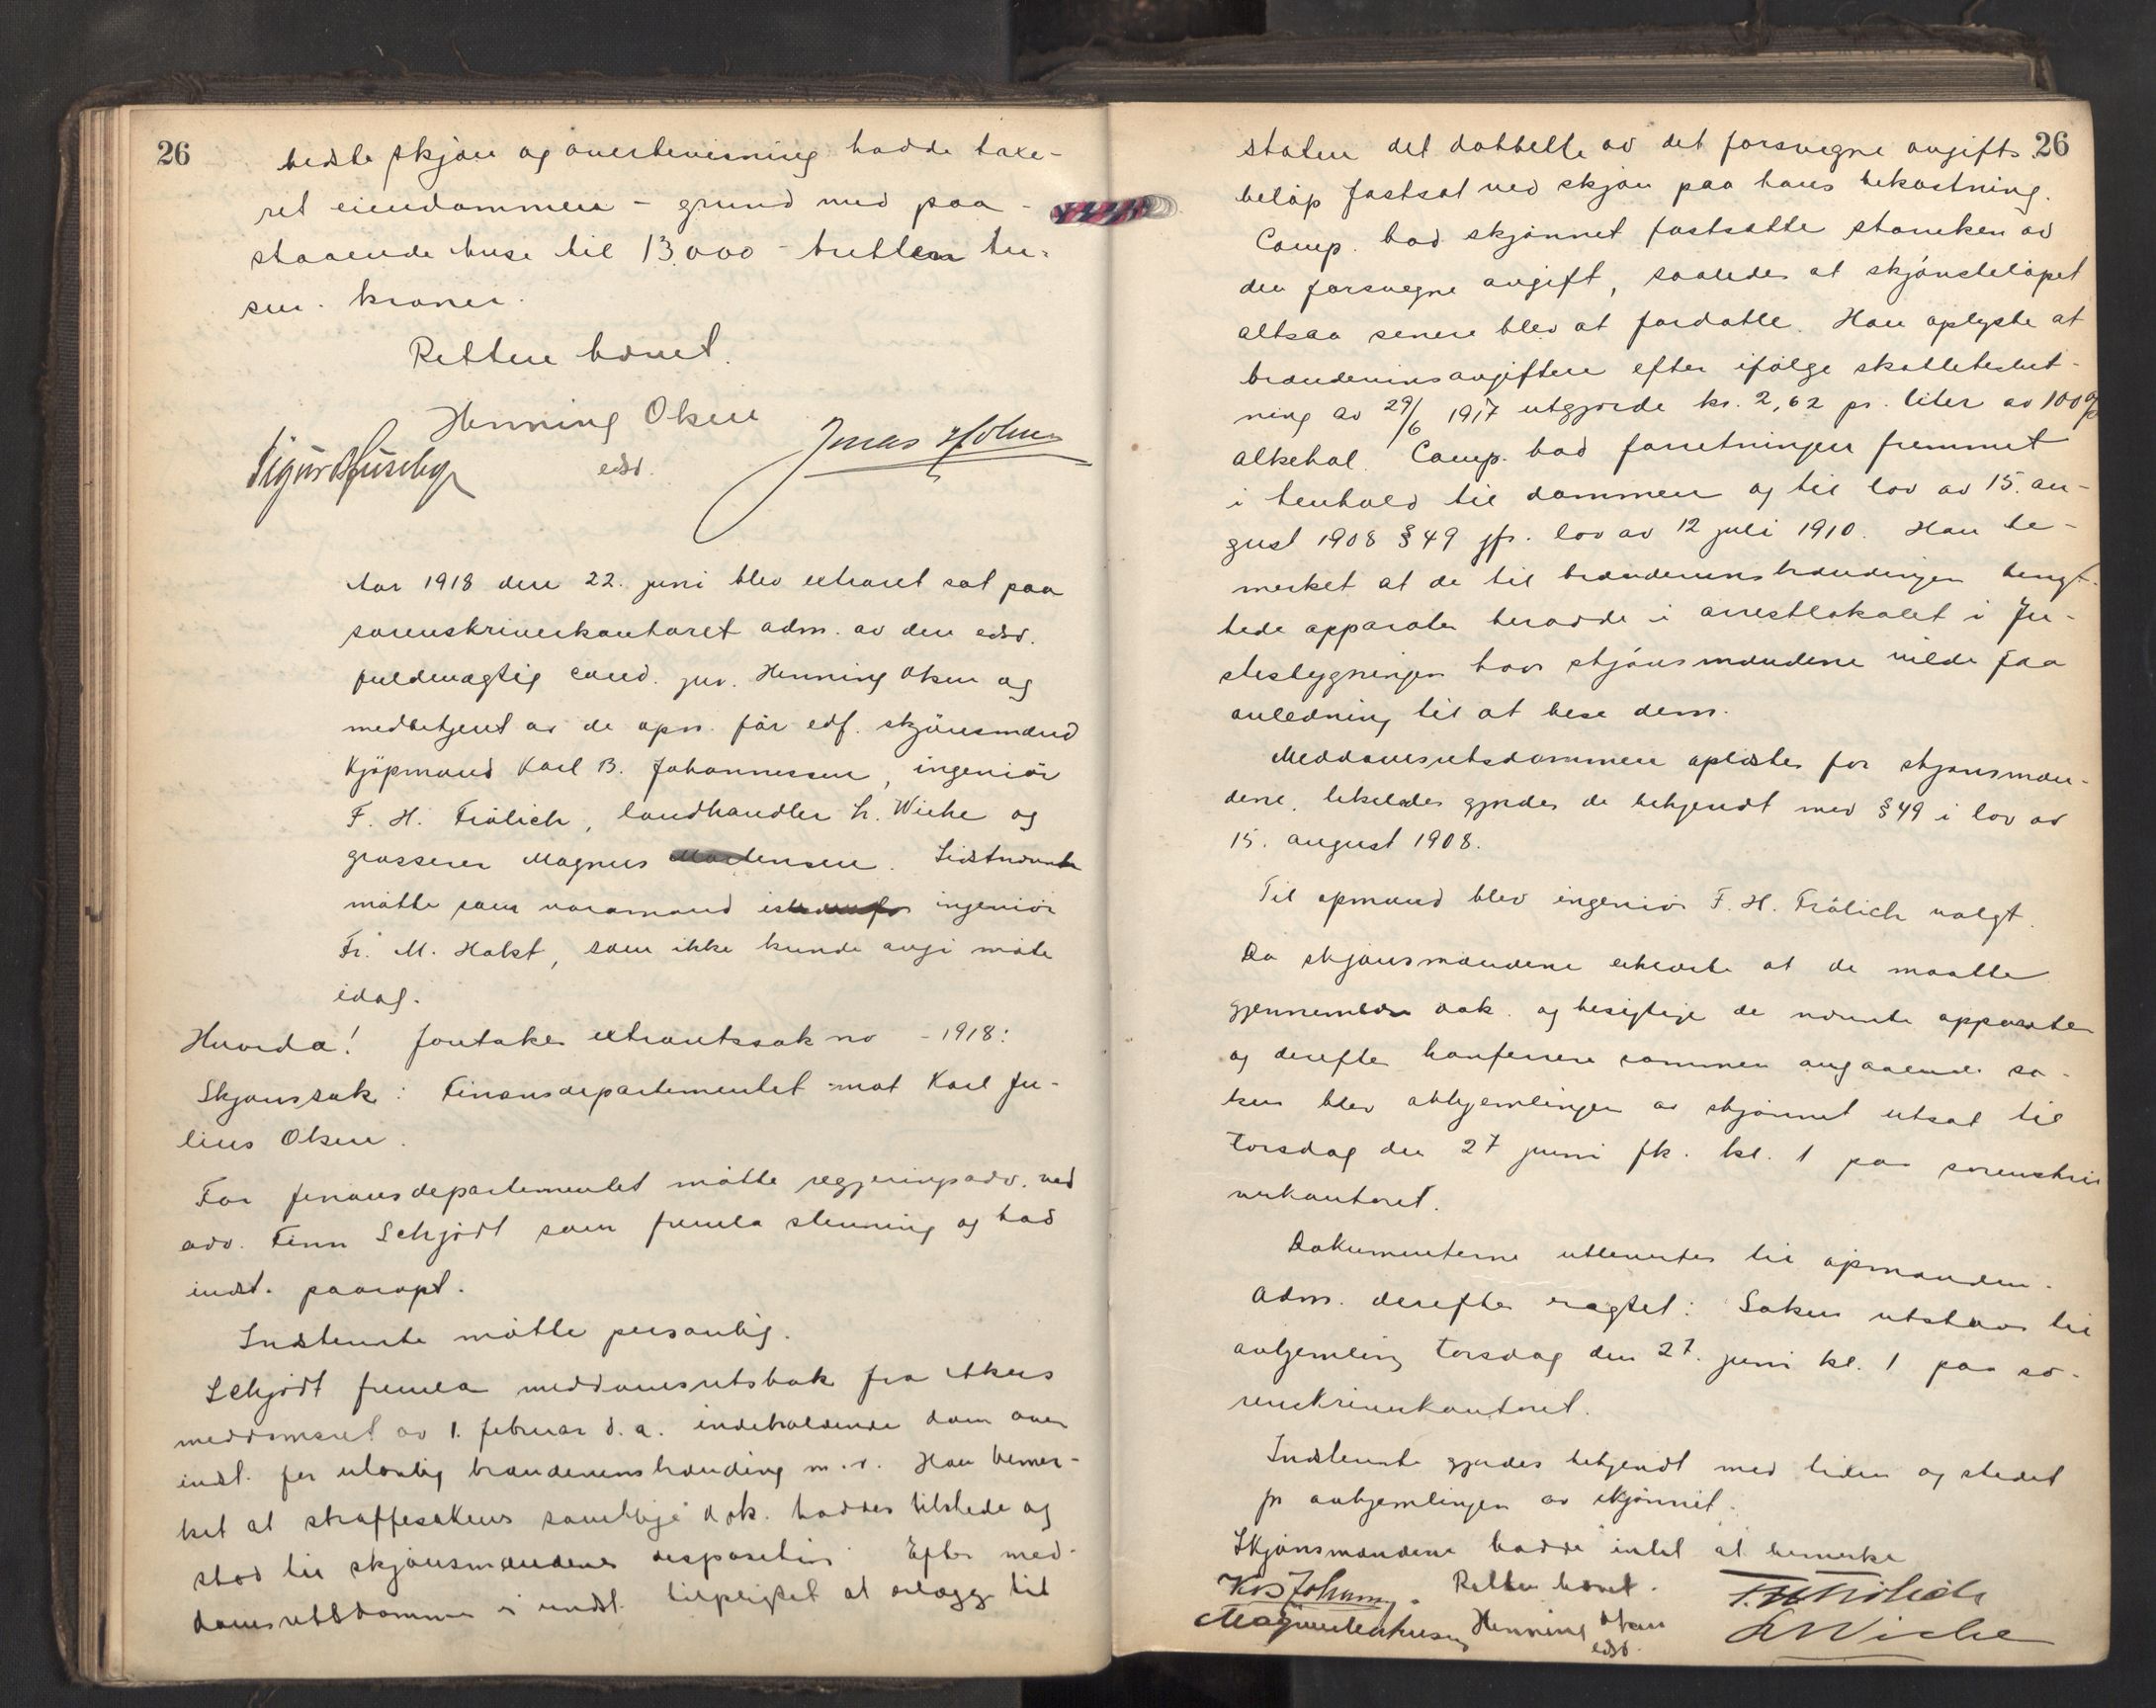 26
bedste skjøn og overbevisning hadde taxe-
ret eiendommen - grund med paa-
staaende huse til 13.000 - tretten tu-
sen - kroner.
Retten hævet.
Henning Olsen
edsv.
Sigurd Huseby
Jonas Holm
Aar 1918 den 22. juni blev extraret sat paa
sorenskriverkontoret adm. av den edsv.
fuldmægtig cand. jur. Henning Olsen og
medbetjent av de opn. før edf. skjönsmænd
Kjöpmand Karl B. Johannessen, ingeniör
F. H. Frölich, landhandler L. Wiche og
grosserer Magnus. Sidstnævnte
mötte som varamand ingeniör
Fr. M. Holst, som ikke kunde avgi möte
idag.
Hvorda! foretakes extraretssak no - 1918:
Skjønssak: Finansdepartementet mot Karl Ju-
lius Olsen.
For finansdepartementet mötte regjeringsadv. ved
adv. Finn Schjödt som fremla stevning og bad
indst. paaropt.
Indstevnte mötte personlig.
Schjödt fremla meddomsretsbok fra Akers
meddomsret av 1. februar d.a. indeholdende dom over
indst. for ulovlig brændevinsbrænding m.v. Han bemer-
ket at straffesakens samtlige dok. haddes tilstede og
stod til skjönsmændenes disposition. Efter med-
domsretsdommen er indst. tilpligtet at erlægge til
26
staten det dobbelte av det forsvegne avgifts-
beløp fastsat ved skjøn paa hans bekostning.
Comp. bad skjønnet fastsætte størrelsen av
den forsvegne avgift, saaledes at skjönsbeløpet
altsaa senere blev at fordoble. Han oplyste at
brændevinsavgiften efter ifölge skattebeslut-
ning av 29/6 1917 utgjorde kr. 2,62 pr. liter av 100%
alkohol. Comp. bad forretningen fremmet
i henhold til dommen og til lov av 15. au-
gust 1908 § 49 jfr. lov av 12 juli 1910. Han be-
merket at de til brændevinsbrændingen benyt-
tede apparater beroedde i arrestlokalet i Ju-
stisbygningen hvor skjönsmændene vilde faa
anledning til at bese dem.
Meddomsretsdommen oplæstes for skjønsmæn-
dene, likeledes gjordes de bekjendt med § 49 i lov av
15. august 1908.
Til opmand blev ingeniör F. H. Frölich valgt.
Da skjønsmændene erklærte at de maatte
gjennemlæse dok. og besigtige de nævnte apparater
og derefter konferere sammen angaaende sa-
ken blev avhjemlingen av skjönnet utsat til
torsdag den 27 juni fk. kl. 1 paa sorenskri-
verkontoret.
Dokumenterne utlevertes til opmanden.
Adm. derefter eragtet: Saken utstaar til
avhjemling torsdag den 27. juni kl. 1 paa so-
renskriverkontoret.
Indstevnte gjordes bekjendt med tiden og stedet
for avhjemlingen av skjönnet.
Skjönsmændene hadde intet at bemerke
Retten hævet.
K B Johannessen
F. H. Frölich
Henning Olsen
edsv.
L Wiche